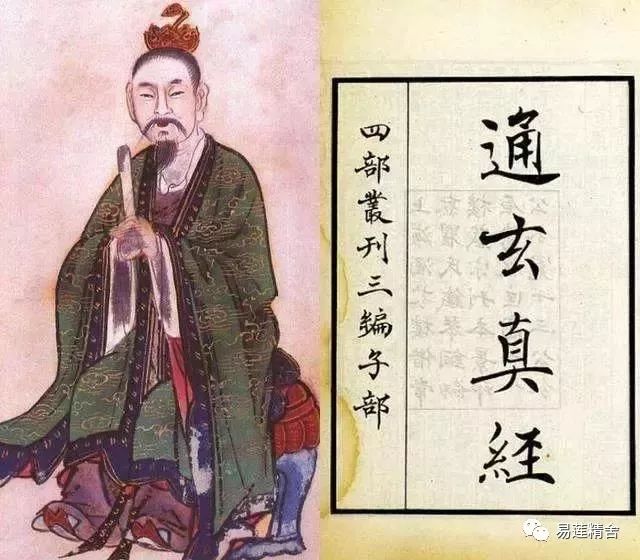 通玄真経
四部叢刊三編子部
易莲精舍